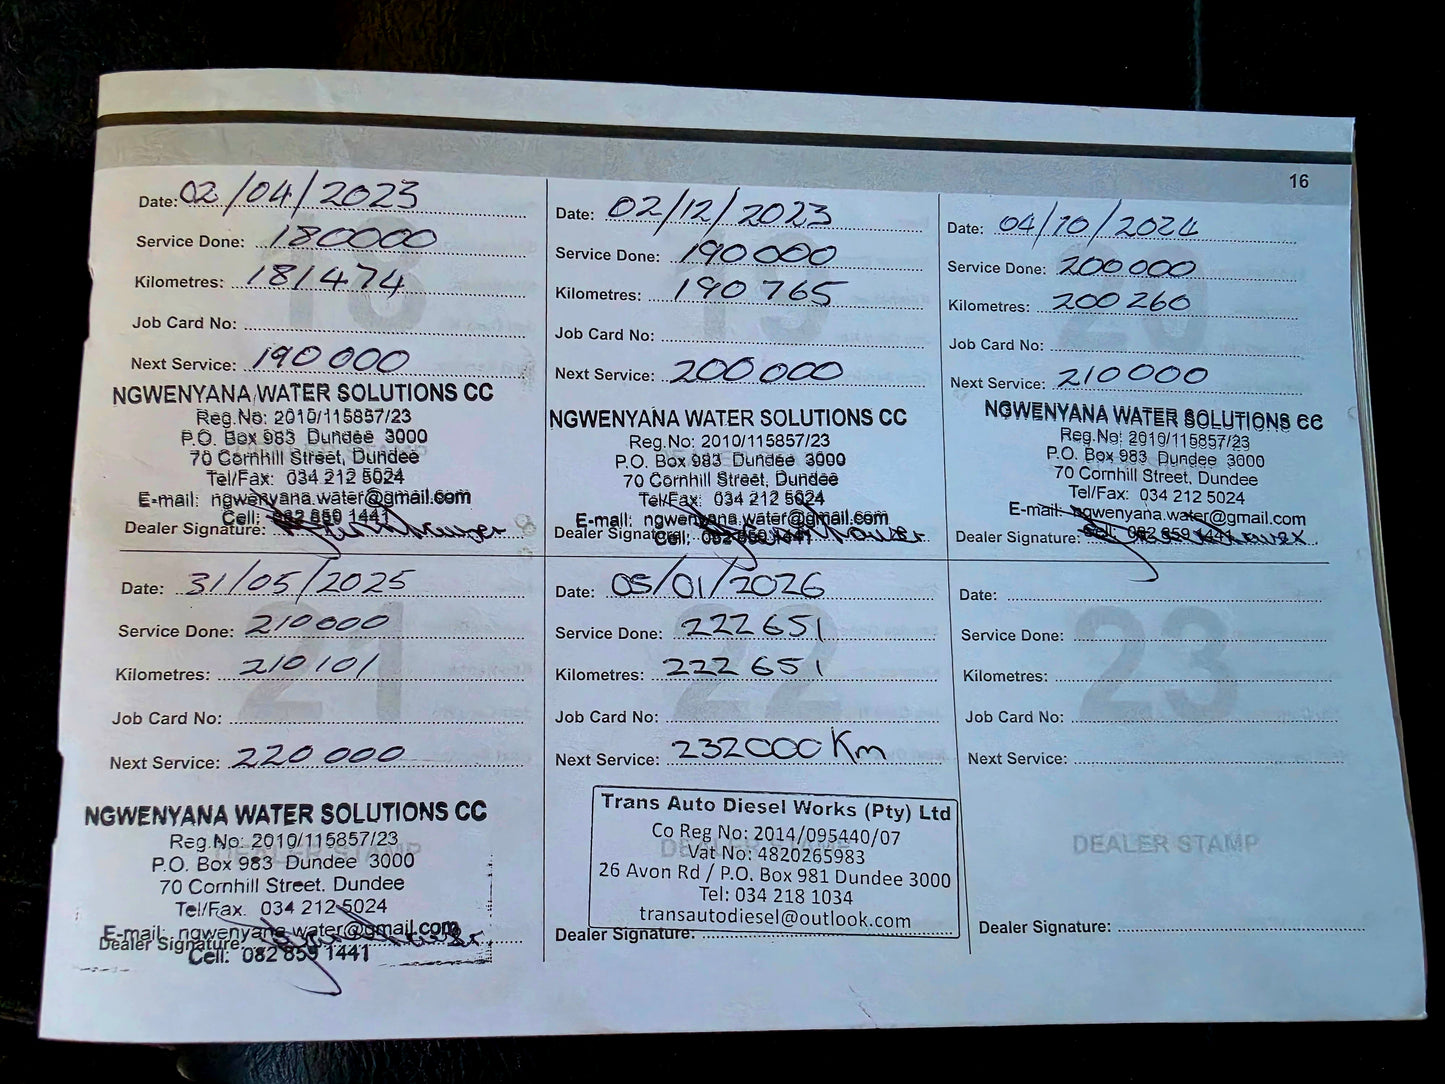 16
Date: 02/04/2023
Service Done: 180000
Kilometres: 181474
Job Card No:
Next Service: 190 000
18
NGWENYANA WATER SOLUTIONS CC
Reg.No: 2010/115857/23
P.O. Box 983 Dundee 3000
70 Cornhill Street, Dundee
Tel/Fax: 034 212 5024
E-mail: ngwenyana.water@gmail.com
Cell: 082 859 1441
Dealer Signature:
Date: 02/12/2023
Service Done: 190 000
Kilometres: 190 765
Job Card No:
Next Service: 200 000
19
NGWENYANA WATER SOLUTIONS CC
Reg.No: 2010/115857/23
P.O. Box 983 Dundee 3000
70 Cornhill Street, Dundee
Tel/Fax: 034 212 5024
E-mail: ngwenyana.water@gmail.com
Dealer Signature:
Cell: 082 859 1441
Date: 04/10/2024
Service Done: 200 000
Kilometres: 200 260
Job Card No:
Next Service: 210 000
20
NGWENYANA WATER SOLUTIONS CC
Reg.No: 2010/115857/23
P.O. Box 983 Dundee 3000
70 Cornhill Street, Dundee
Tel/Fax: 034 212 5024
E-mail: ngwenyana.water@gmail.com
Cell: 082 859 1441
Dealer Signature:
Date: 31/05/2025
Service Done: 210000
Kilometres: 210101
Job Card No:
Next Service: 220 000
21
NGWENYANA WATER SOLUTIONS CC
Reg.No: 2010/115857/23
DEALER STAMP
P.O. Box 983 Dundee 3000
70 Cornhill Street. Dundee
Tel/Fax. 034 212 5024
E-mail: ngwenyana.water@gmail.com
Dealer Signature:
Cell: 082 859 1441
Date: 05/01/2026
Service Done: 222 651
Kilometres: 222 651
Job Card No:
Next Service: 232000 Km
22
Trans Auto Diesel Works (Pty) Ltd
Co Reg No: 2014/095440/07
DEALER STAMP
Vat No: 4820265983
26 Avon Rd / P.O. Box 981 Dundee 3000
Tel: 034 218 1034
transautodiesel@outlook.com
Dealer Signature:
Date:
Service Done:
Kilometres:
Job Card No:
Next Service:
23
DEALER STAMP
Dealer Signature: